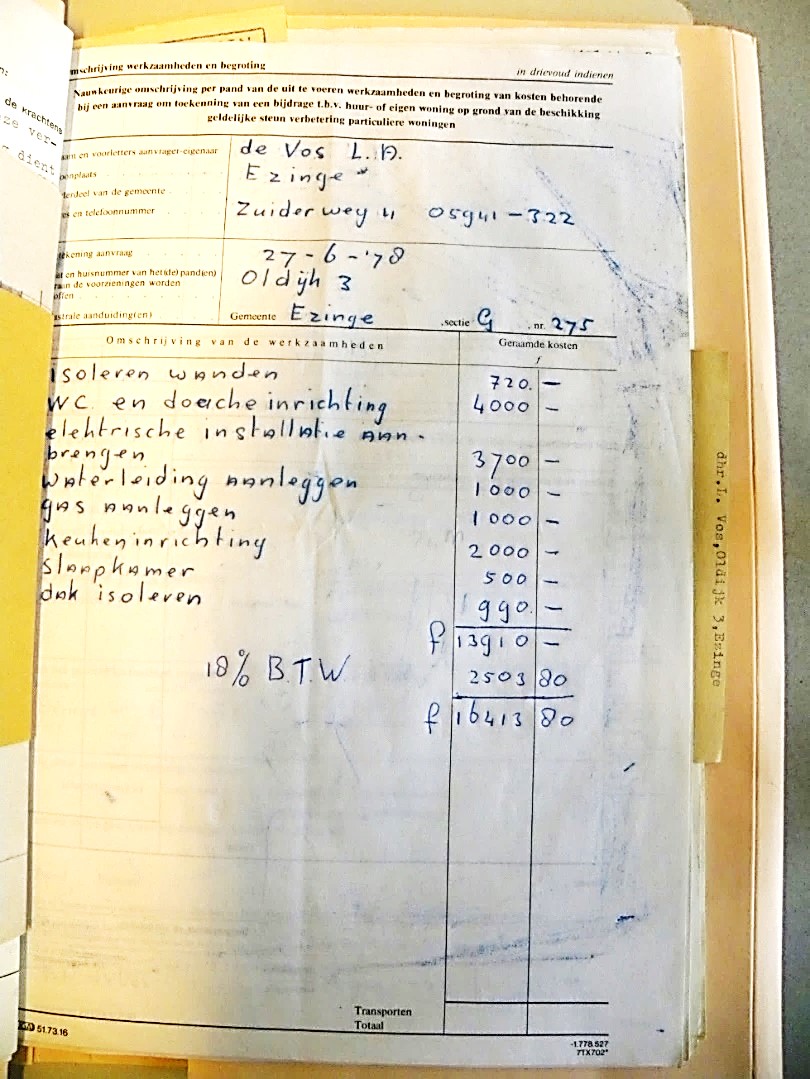 n:
de krachtens
ze ver-
- dient
mschrijving werkzaamheden en begroting
in drievoud indienen
Nauwkeurige omschrijving per pand van de uit te voeren werkzaamheden en begroting van kosten behorende
bij een aanvraag om toekenning van een bijdrage t.b.v. huur- of eigen woning op grond van de beschikking
geldelijke steun verbetering particuliere woningen
aam en voorletters aanvrager-eigenaar de Vos L.A.
oonplaats Ezinge
derdeel van de gemeente
es en telefoonnummer Zuiderweg 4 05941-322
tekening aanvraag 27-6-'78
at en huisnummer van het(de) pand(en) Oldijk 3
aan de voorzieningen worden
offen
astrale aanduiding(en) Gemeente Ezinge sectie G nr. 275
Omschrijving van de werkzaamheden Geraamde kosten
f
isoleren wanden 720.—
WC en doucheinrichting 4000 —
elektrische installatie aan-
brengen 3700 —
Waterleiding aanleggen 1000 —
gas aanleggen 1000 —
Keukeninrichting 2000 —
Slaapkamer 500 —
dak isoleren 990.—
f 13910 —
18% B.T.W. 2503 80
f 16413 80
Transporten
Totaal
51.73.16
-1.778.527
7TX702*
dhr.L. Vos,Oldijk 3,Ezinge